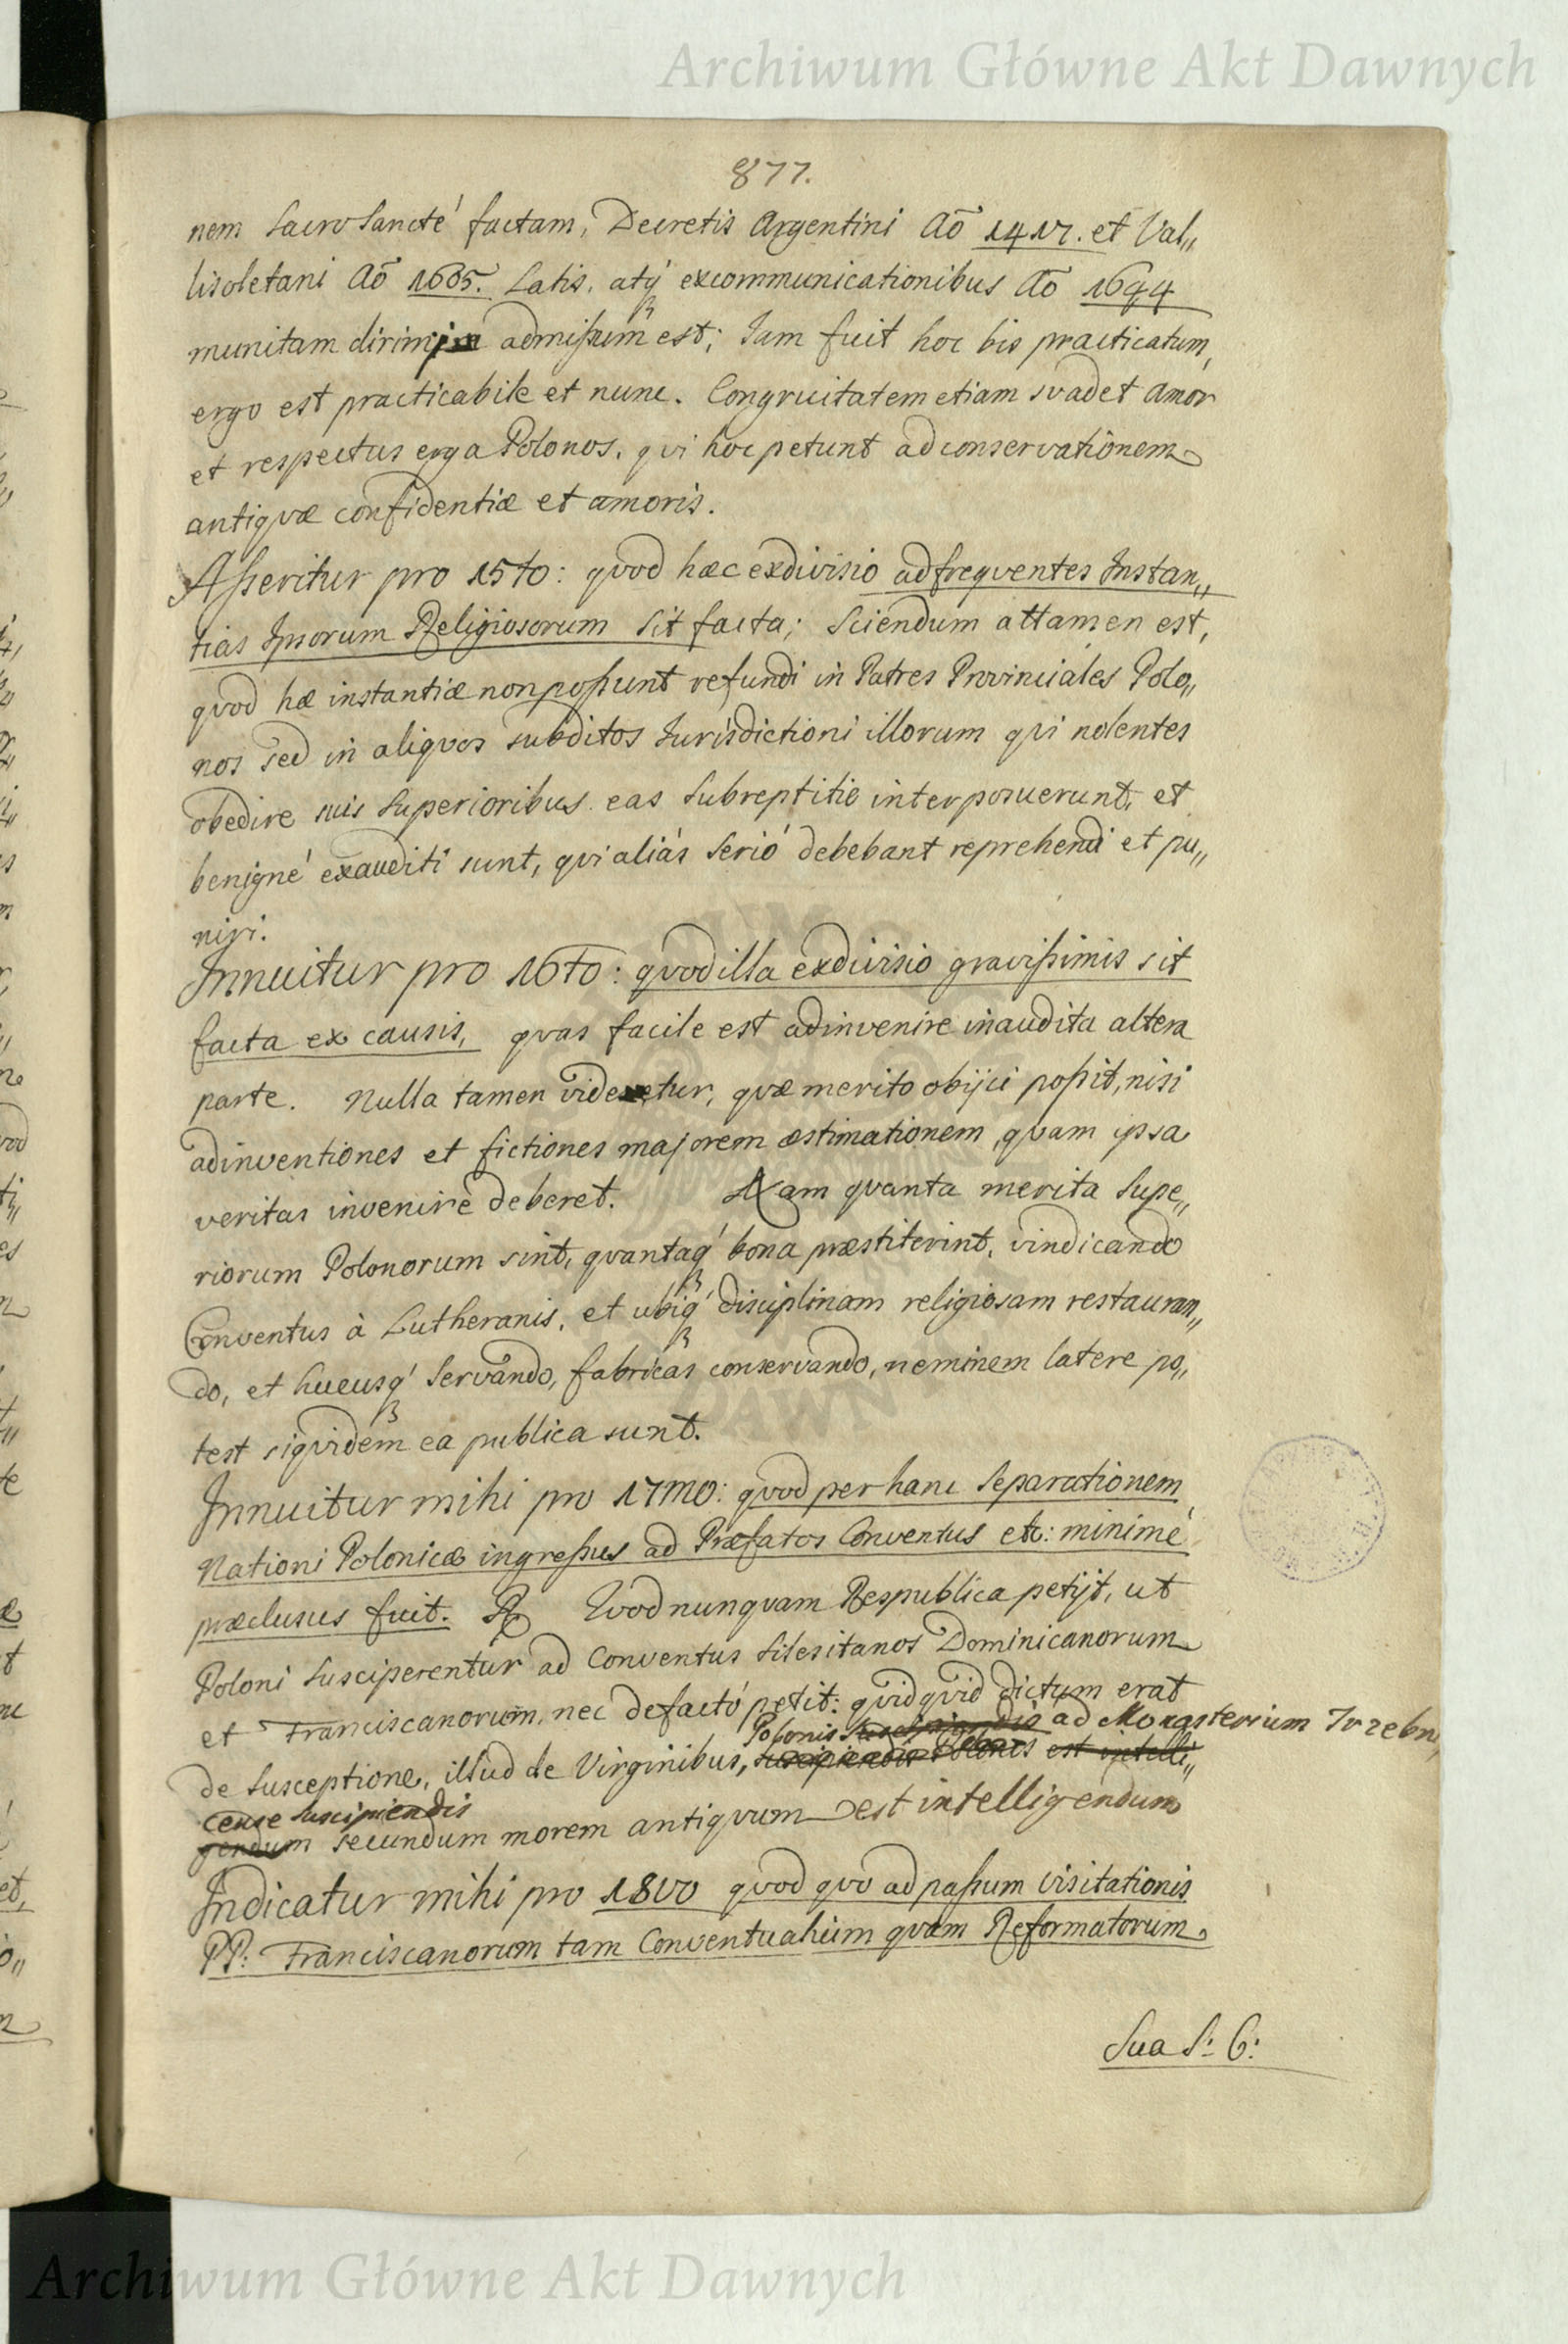 Archiwum Główne Akt Dawnych
877.
nem SacroSancté factam, Decretis Argentini Aō 1417. et Val„
lisoletani Aō 1605. Latis, atq́ excommunicationibus Aō 1694
munitam dirimi admissum est; Jam fuit hoc bis practicatum,
ergo est practicabile et nunc. Congruitatem etiam svadet Amor
et respectus erga Polonos, qvi hoc petunt ad conservationem
antiqvæ confidentiæ et amoris.
Asseritur pro 15to: qvod hæc exdivisio ad freqventes Instan„
tias Ipsorum Religiosorum Sit facta; Sciendum attamen est,
qvod hæ instantiæ non possunt refundi in Patres Provinciales Polo„
nos sed in aliqvos subditos Jurisdictioni illorum qvi nolentes
obedire suis Superioribus eas Subreptitie interposuerunt, et
benigné exauditi sunt, qvi aliàs Serió debebant reprehendi et pu„
niri.
Innuitur pro 16to: qvod illa exdivisio gravissimis sit
facta ex causis, qvas facile est adinvenire inaudita altera
parte. Nulla tamen videtur, qvæ merito obijci possit, nisi
adinventiones et fictiones majorem æstimationem, qvam ipsa
veritas invenire deberet. Nam qvanta merita Supe„
riorum Polonorum sint, qvantaq́ bona præstiterint, vindicando
Conventus à Lutheranis, et ubiq́ disciplinam religiosam restauran„
do, et hucusq́ Servando, fabricas conservando, neminem latere po„
test siqvidem ea publica sunt.
Innuitur mihi pro 17mo: qvod per hanc Separationem
Nationi Polonicæ ingressus ad Præfatos Conventus etc: minimé
præclusus fuit. Rx Qvod nunqvam Respublica petijt, ut
Poloni Susciperentur ad Conventus Silesitanos Dominicanorum
et Franciscanorum, nec defactó petit: qvidqvid dictum erat
Polonis Suscipiendis ad Monasterium Trzebn„
de Susceptione, illud de Virginibus, suscipiendis Polonis est intelli„
cense Suscipiendis
gendum secundum morem antiqvum est intelligendum
Indicatur mihi pro 18vo qvod qvo ad passum visitationis
PP: Franciscanorum tam Conventualium qvam Reformatorum
Sua S: C:
Archiwum Główne Akt Dawnych